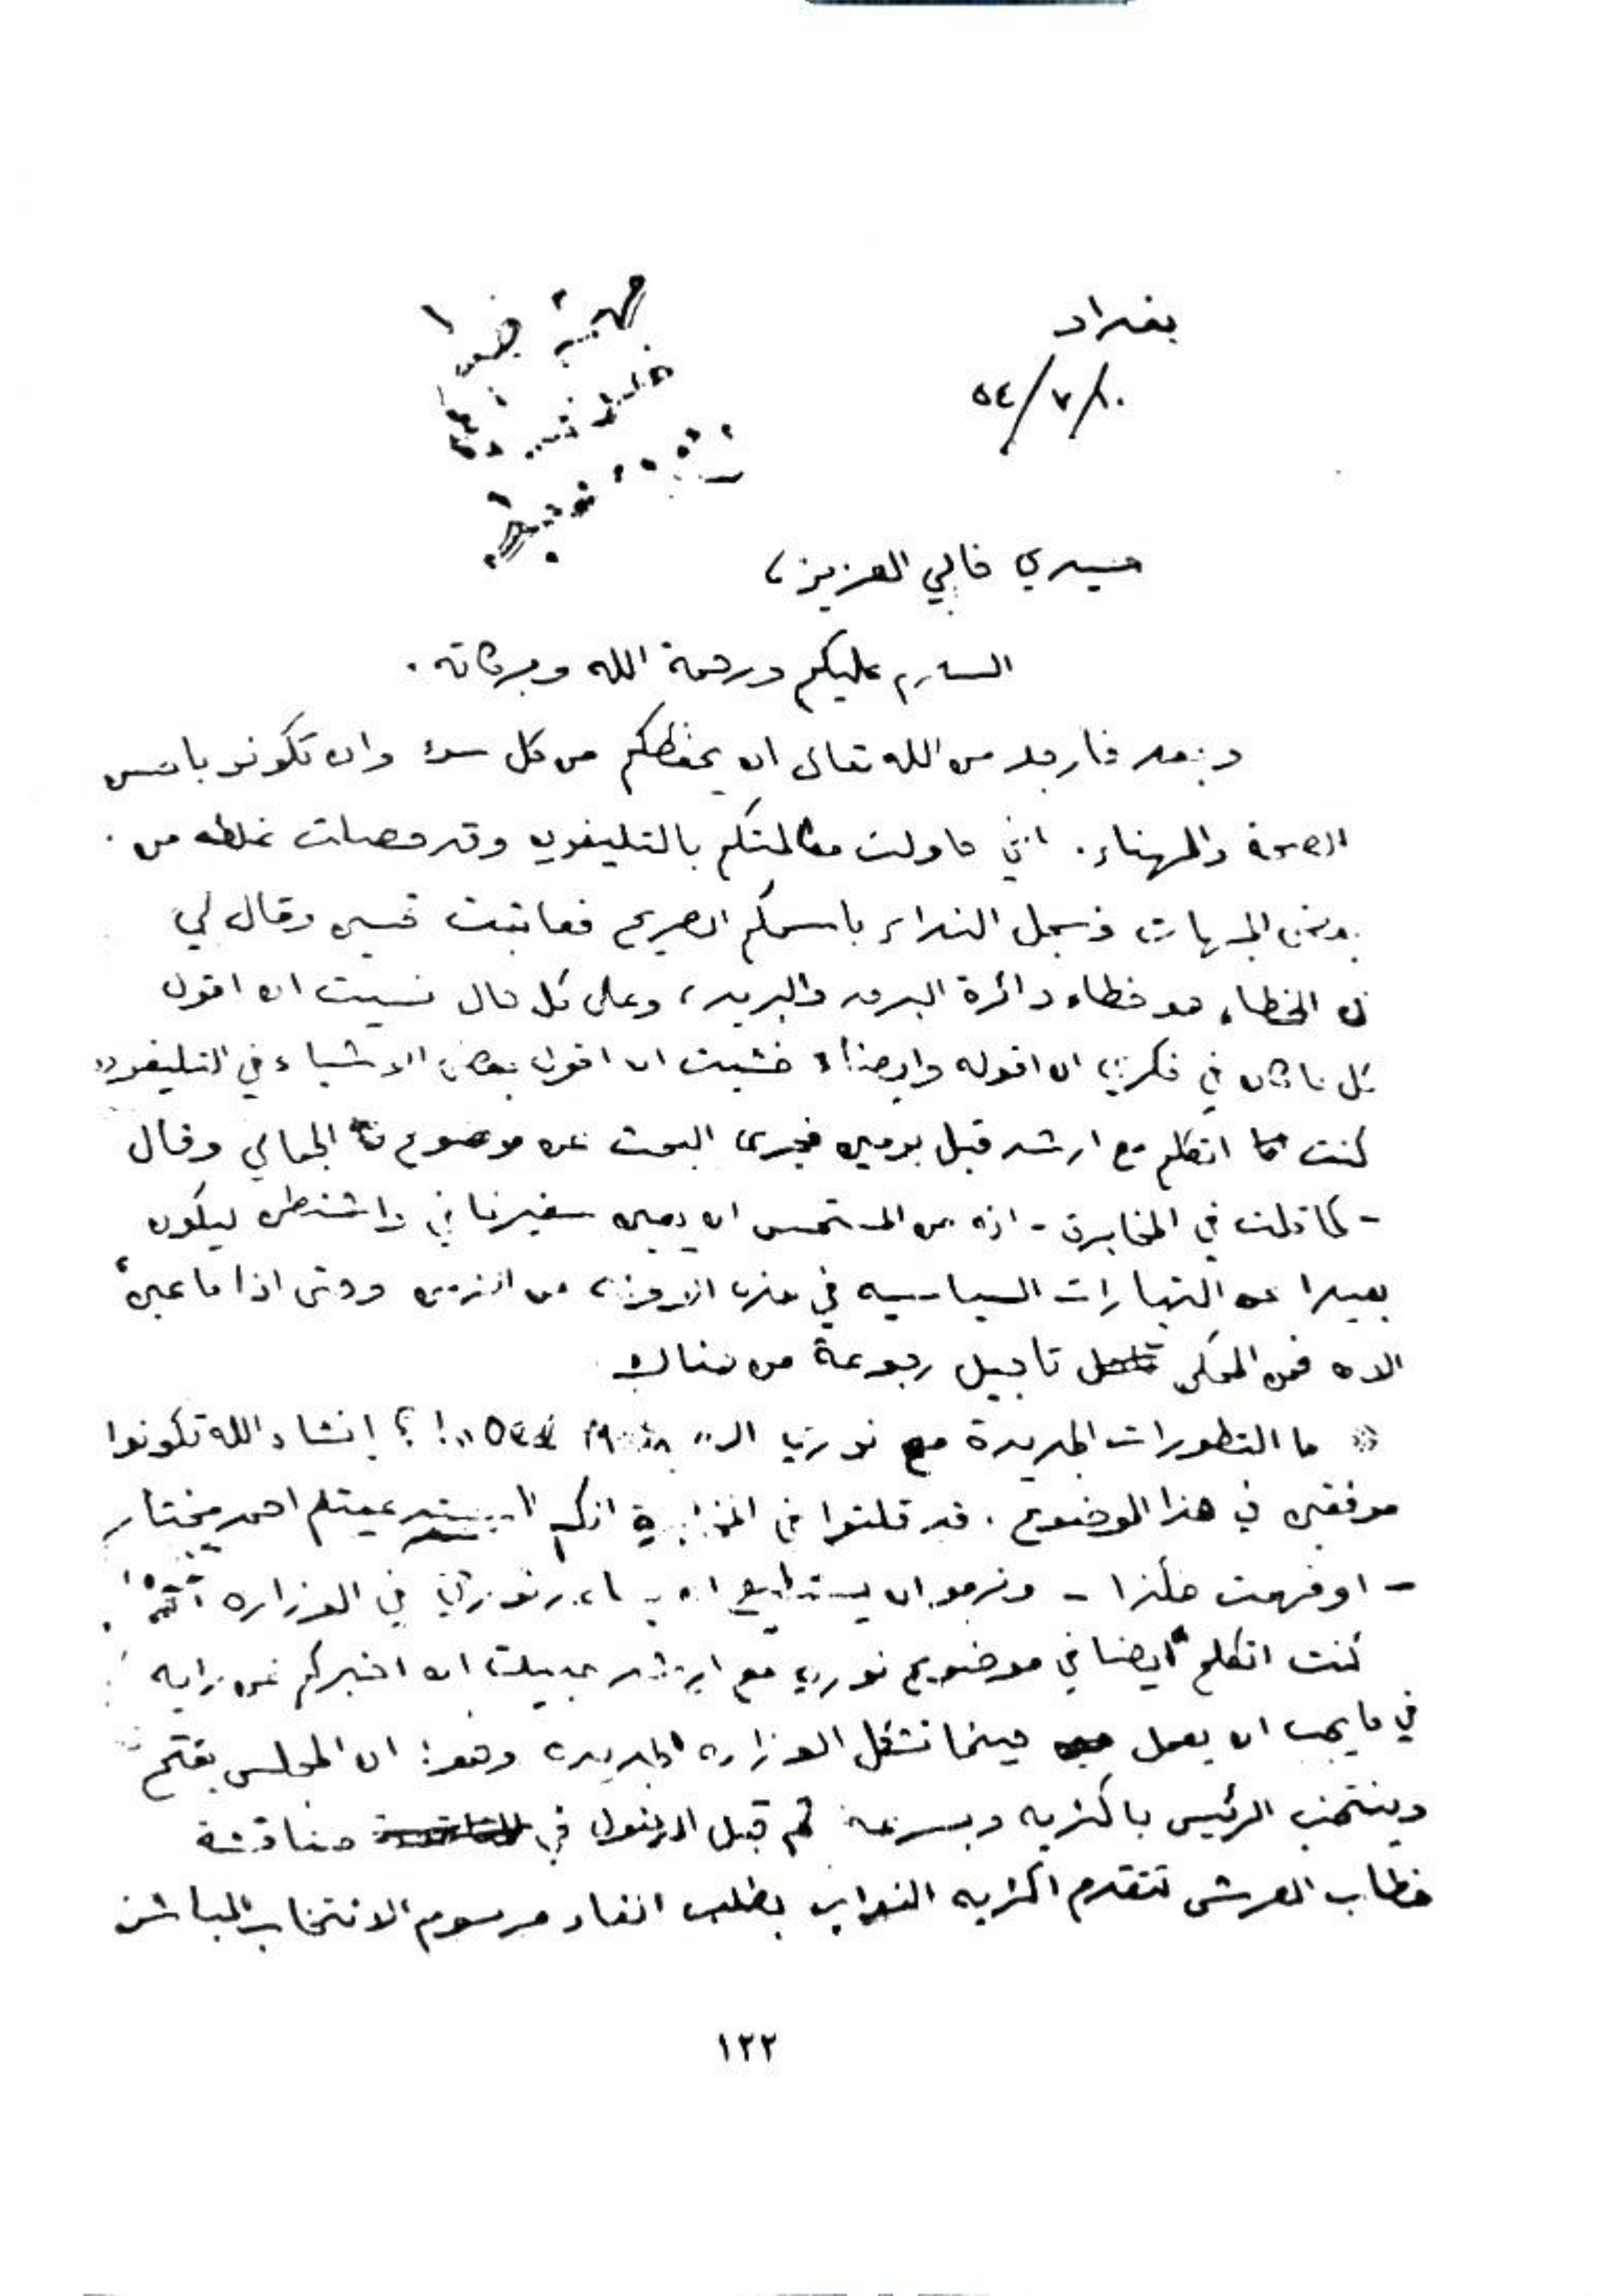 بغداد
٥٤/٧/١٠
سيدي خالي العزيز،
السلام عليكم ورحمة الله وبركاته .
وبعد فارجو من الله تعالى ان يحفظكم من كل سوء وان تكونو باحسن
الصحة والهناء. انني حاولت مكالمتكم بالتليفون وقد حصلت غلطه من
بعض الجهات فسجل النداء باسمكم الصريح فعاتبت تحسين وقال لي
ان الخطاء هو خطاء دائرة البرق والبريد، وعلى كل حال نسيت ان اقول
كل ما كان في فكري ان اقوله وايضاً خشيت ان اقول بعض الاشياء في التليفون
كنت اتكلم مع ارشد قبل يومين فجرى البحث عن موضوع الجمالي وقال
- كما قلت في المخابرة - انه من المستحسن ان يعين سفيرنا في واشنطن ليكون
بعيدا عن التيارات السياسيه في هذه الاونه من الزمن وحتى اذا ما عين
الان فمن الممكن تاجيل رجوعة من هناك
ما التطورات الجديدة مع نوري الـ " OLD FOX "! ؟ إنشاء الله تكونوا
موفقين في هذا الموضوع . قد قلتوا في المخابرة انكم احمد مختار
- او فهمت هكذا - ونرجو ان يستطيع ان نوري في الوزاره
كنت اتكلم ايضا في موضوع نوري مع ارشد ان اخبركم عن رايه
في ما يجب ان يعمل حينما تشكل الوزاره الجديده وهو: ان المجلس يفتح
وينتخب الرئيس باكثريه وبسرعة ثم قبل الدخول في مناقشة
خطاب العرش تتقدم اكثريه النواب بطلب الغاء مرسوم الانتخاب المباشر
١٢٢